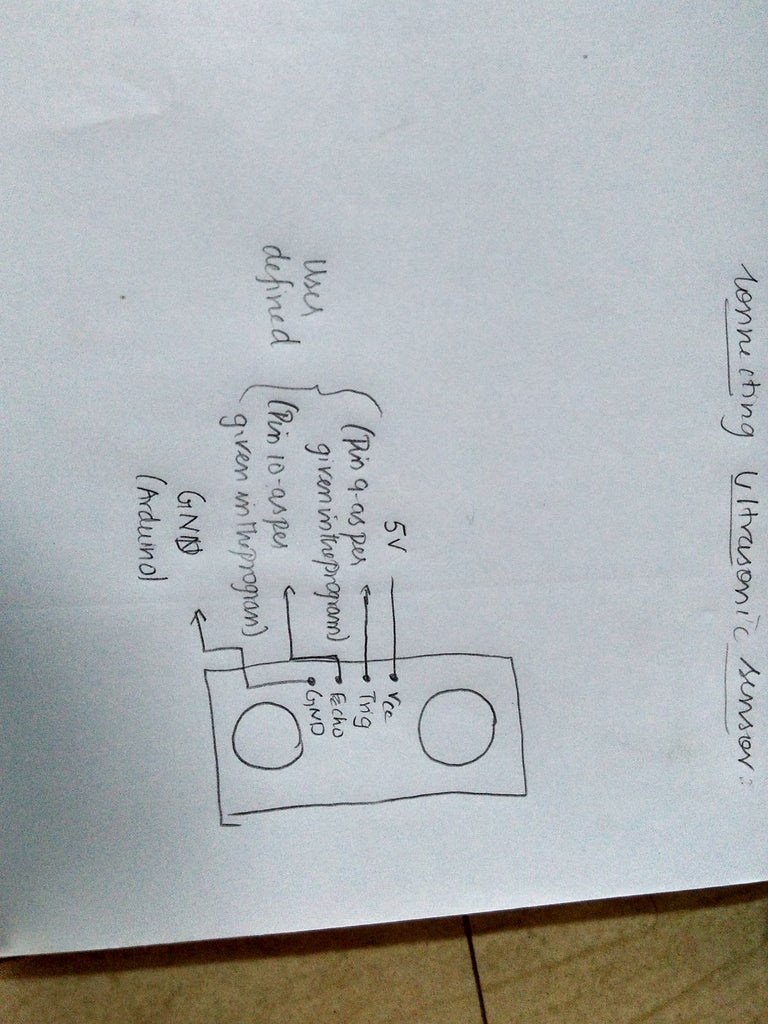 Connecting Ultrasonic sensor:
5V
(Pin 9-as per
given in the program)
User
defined
(Pin 10-as per
given in the program)
GND
(Arduino)
Vcc
Trig
Echo
GND